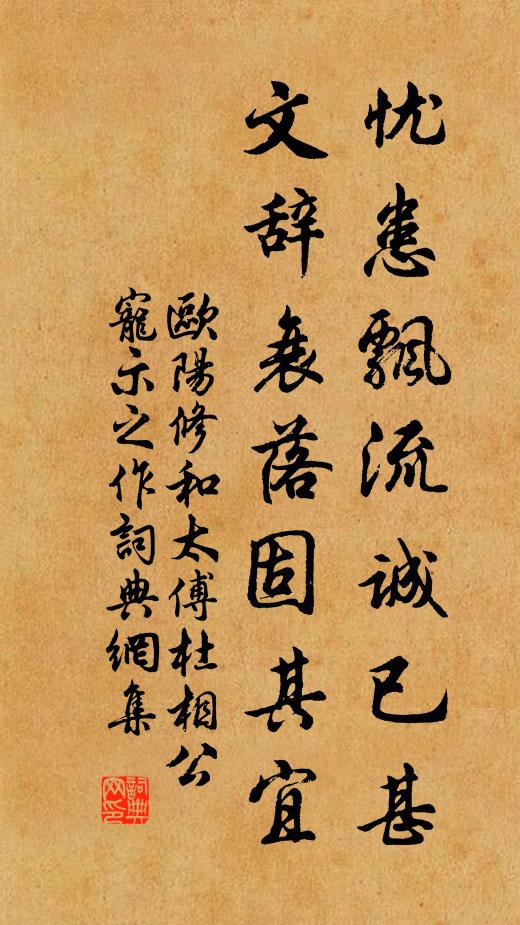 忧患飘流诚已甚
文辞衰落固其宜
歐陽修和太傅杜相公
寵示之作詞典網集
詞典
网印